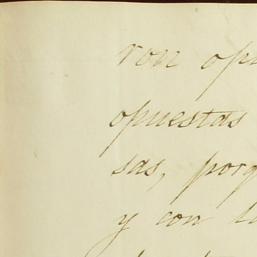 ron opu
opuestas
sas, porq
y con